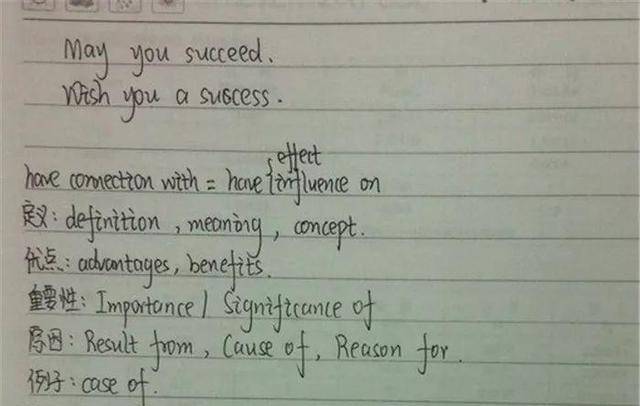 May you succeed.
Wish you a success.
effect
have connection with = have { influence on
定义: definition, meaning, concept.
优点: advantages, benefits.
重要性: Importance / Significance of
原因: Result from, Cause of, Reason for.
例子: case of.